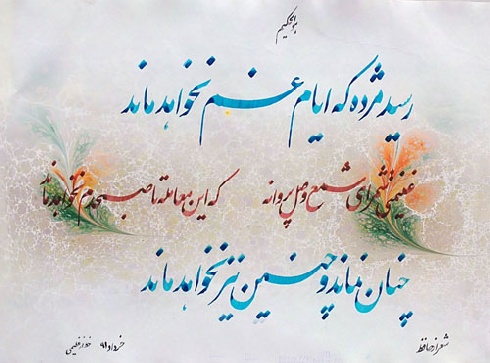 هوالحکیم
رسید مژده که ایام غم نخواهد ماند
غنیمتی شمر ای شمع وصل پروانه که این معامله تا صبحدم نخواهد ماند
چنان نماند و چنین نیز نخواهد ماند
شعر از حافظ خرداد ۹۱